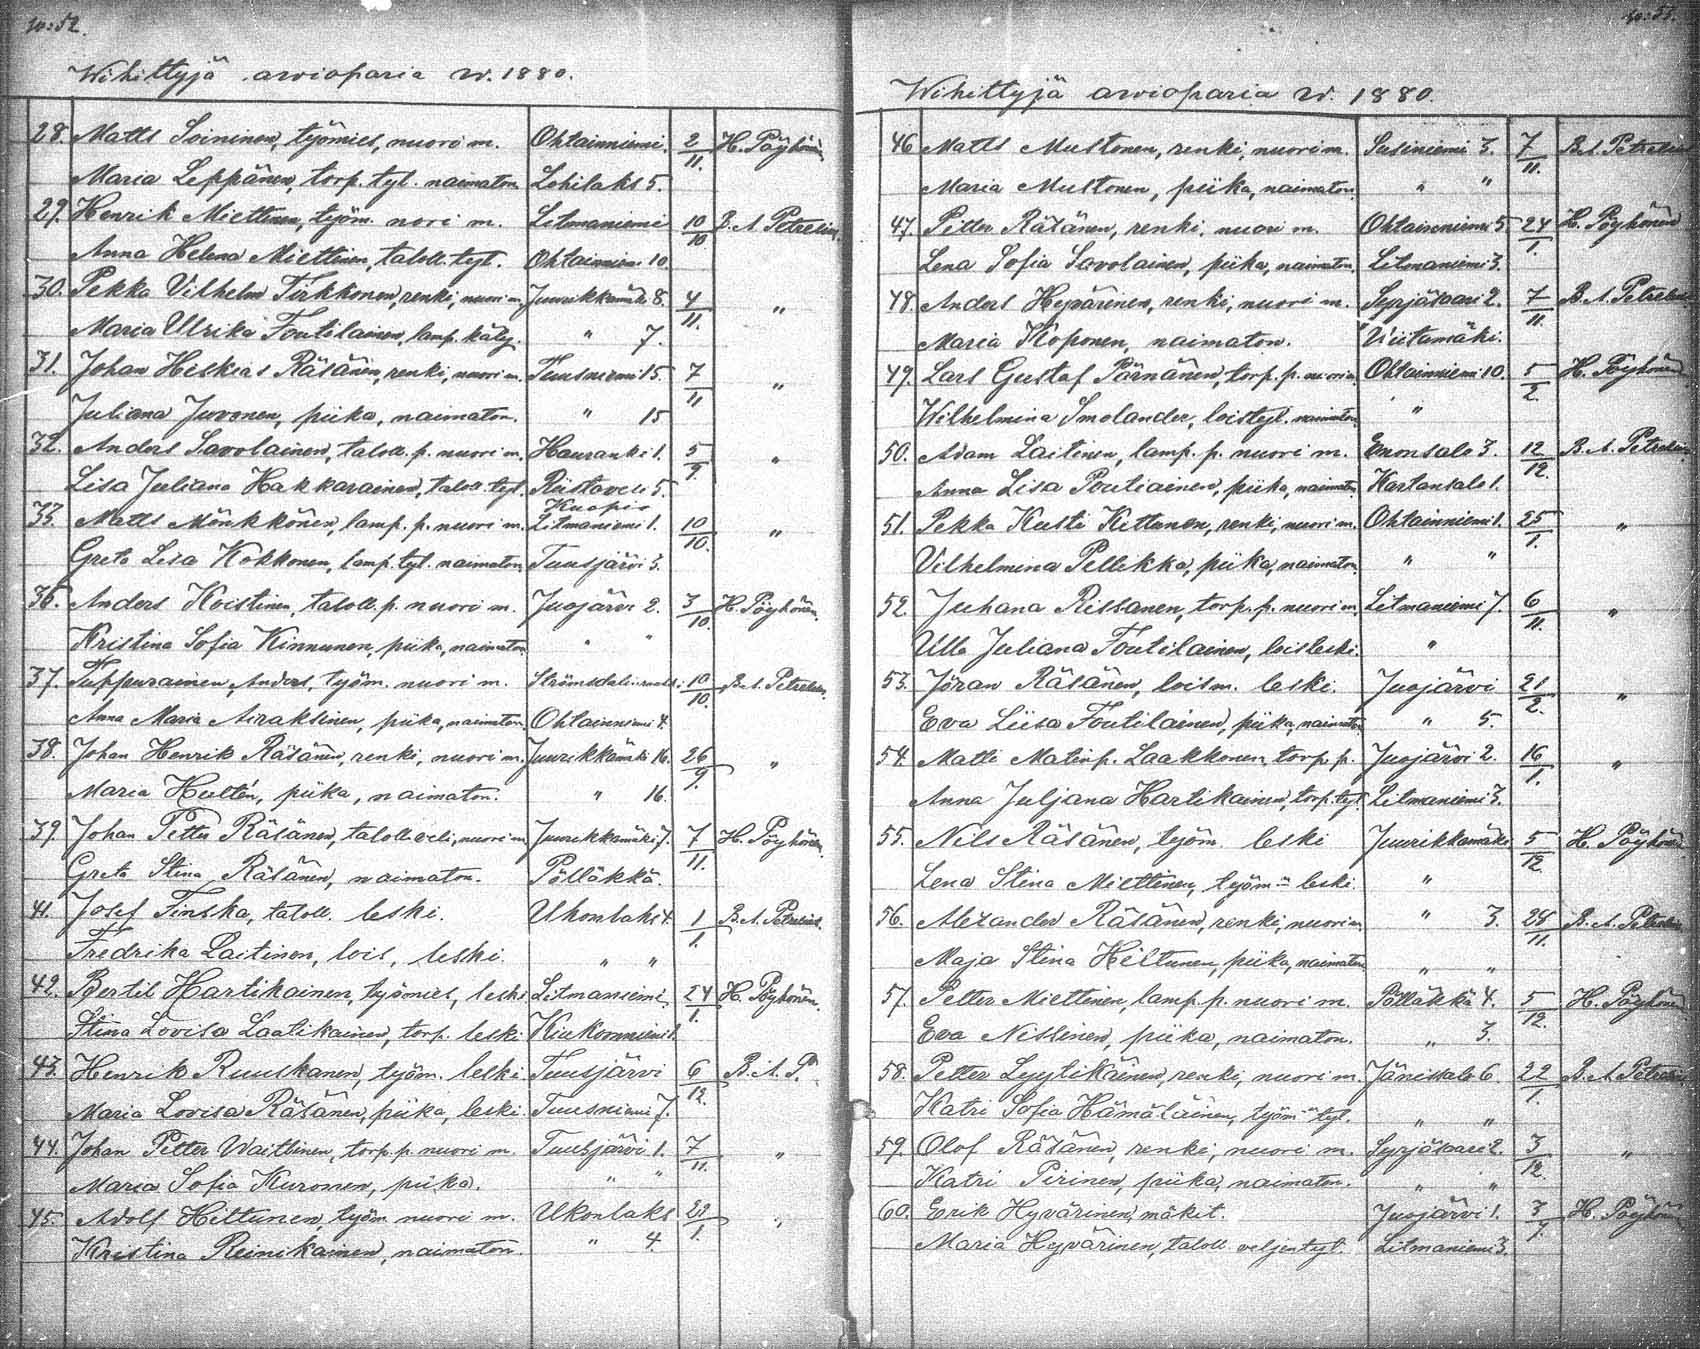 Wihittyjä aviopario w. 1880.
28. Matts Soininen, työmies, nuori m. Ohtainniemi. 2/11. H. Pöyhönen
Maria Leppänen, torp. tyt. naimaton Lohilaks 5.
29. Henrik Miettinen, työm. nori m. Litmaniemi 10/10 B. A. Petrelius.
Anna Helena Miettinen, taloll. tyt. Ohtainniemi 10
30. Pekka Vilhelm Tirkkonen, renki, nuori m. Juurikkamäki 8. 4/11. "
Maria Ulrika Toutilainen, lamp. käly. " 7.
31. Johan Heskias Räsänen, renki, nuori m. Tuusniemi 15. 7/11 "
Juliana Juvonen, piika, naimaton. " 15
32. Anders Savolainen, taloll. p. nuori m. Hauranki 1. 5/9. "
Lisa Juliana Hakkarainen, taloll. tyt. Riistavesi 5.
Kuopio
33. Matts Mönkkönen, lamp. p. nuori m. Litmaniemi 1. 10/10. "
Greta Lisa Kokkonen, lamp. tyt. naimaton Tuusjärvi 3.
36. Anders Koistinen, taloll. p. nuori m. Juojärvi 2. 3/10. H. Pöyhönen.
Kristina Sofia Kinnunen, piika, naimaton " "
37. Tuppurainen Anders, työm. nuori m. Strömsdalin 10/10. B. A. Petrelius.
Anna Maria Airaksinen, piika, naimaton Ohtainniemi 4.
38. Johan Henrik Räsänen, renki, nuori m. Juurikkamäki 16. 26/9. "
Maria Hultén, piika, naimaton. " 16.
39. Johan Petter Räsänen, taloll. veli, nuori m. Juurikkamäki 7. 7/11. H. Pöyhönen.
Greta Stina Räsänen, naimaton. Pölläkkä.
41. Josef Finska, taloll. leski. Ukonlaks 4. 1/1. B. A. Petrelius.
Fredrika Laitinen, lois, leski. " "
42. Bertil Hartikainen, työmies, leski Litmaniemi 24/1. H. Pöyhönen.
Stina Lovisa Laatikainen, torp. leski Kiukoonniemi 1.
43. Henrik Ruuskanen, työm. leski Tuusjärvi 6/12. B. A. P.
Maria Lovisa Räsänen, piika, leski. Tuusniemi 7.
44. Johan Petter Waittinen, torp. p. nuori m. Tuusjärvi 1. 7/11. "
Maria Sofia Kuronen, piika. " "
45. Adolf Hiltunen, työm. nuori m. Ukonlaks 22/1. "
Kristina Reinikainen, naimaton. " 4
Wihittyjä aviopario w. 1880.
46 Matts Mustonen, renki, nuori m. Susiniemi 3. 7/11. B. A. Petrelius
Maria Mustonen, piika, naimaton. " "
47. Petter Räsänen, renki, nuori m. Ohtainniemi 5 24/1. H. Pöyhönen
Lena Sofia Savolainen, piika, naimaton. Litmaniemi 3.
48. Anders Hyvärinen, renki, nuori m. Syrjäsaari 2. 7/11. B. A. Petrelius
Maria Koponen, naimaton. Viitamäki.
49. Lars Gustaf Pärnänen, torp. p. nuori m. Ohtainniemi 10. 5/2. H. Pöyhönen
Wilhelmina Smolander, loistyt. naimaton "
50. Adam Laitinen, lamp. p. nuori m. Enonsalo 3. 12/12. B. A. Petrelius
Anna Lisa Poutiainen, piika, naimaton. Kartansalo 1.
51. Pekka Kusti Kettunen, renki, nuori m. Ohtainniemi 1. 25/1. "
Vilhelmina Pellikka, piika, naimaton. " "
52. Juhana Rissanen, torp. p. nuori m. Litmaniemi 7. 6/11. "
Ulla Juliana Toutilainen, lois leski. "
53. Jöran Räsänen, loism. leski. Juojärvi 21/2. "
Eva Liisa Toutilainen, piika, naimaton " 5.
54. Matti Matinp. Laakkonen, torp. p. Juojärvi 2. 16/1. "
Anna Juljana Hartikainen, torp. tyt. Litmaniemi 3.
55. Nils Räsänen, työm. leski Juurikkamäki 5/12. H. Pöyhönen
Lena Stina Miettinen, työm:n leski. "
56. Alexander Räsänen, renki, nuori m " 3. 28/11. B. A. Petrelius
Maja Stina Hiltunen, piika, naimaton " "
57. Petter Miettinen, lamp. p. nuori m. Pölläkkä 4. 5/12. H. Pöyhönen
Eva Nissinen, piika, naimaton. " 3.
58. Petter Lyytikäinen, renki, nuori m. Jänissalo 6. 22/1. B. A. Petrelius
Katri Sofia Hämäläinen, työm:n tyt. " "
59. Olof Räsänen, renki, nuori m. Syrjäsaari 2. 3/12. "
Katri Pirinen, piika, naimaton. " "
60. Erik Hyvärinen, mäkit. Juojärvi 1. 3/7. H. Pöyhönen
Maria Hyvärinen, taloll. veljentyt. Litmaniemi 3.